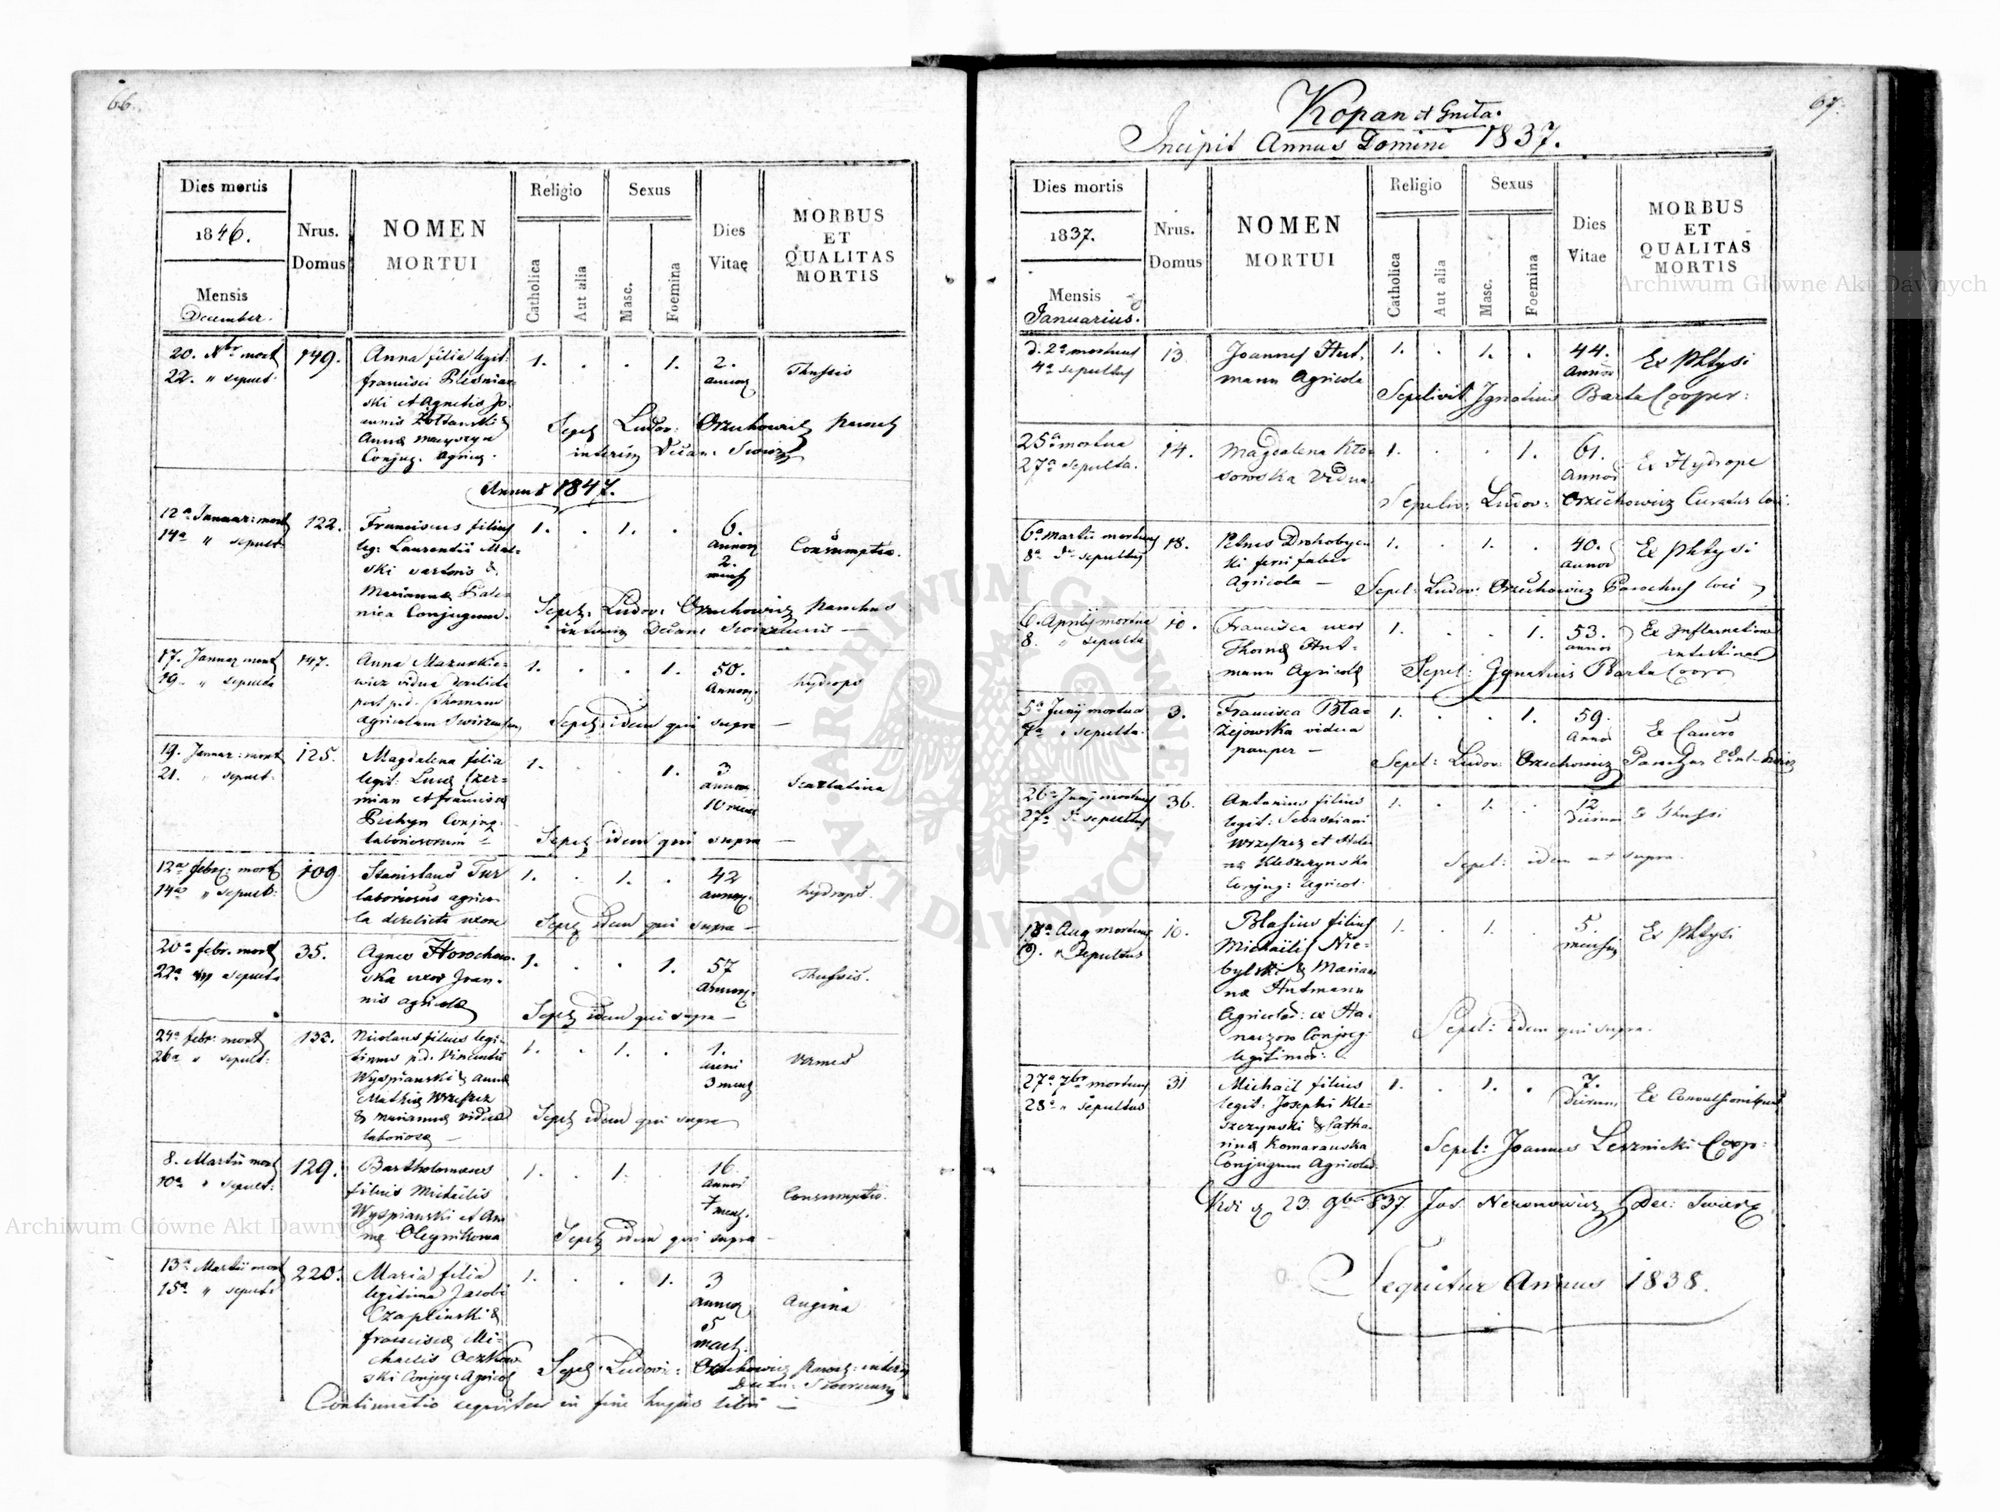 66.
Dies mortis
1846.
Mensis
December.
Nrus.
Domus
NOMEN
MORTUI
Religio
Catholica
Aut alia
Sexus
Masc.
Foemina
Dies
Vitae
MORBUS
ET
QUALITAS
MORTIS
20. Xbr mort
22. " sepult:
149.
Anna filia legit:
francisci
ski et Agnetis Jo-
annis
Anna
Conjug. Agric.
1. . . 1.
2.
annor
Thussis
Sepel Ludov: Orzechowicz Paroch
interim Decan:
Annus 1847.
12a Januar: mort
14a " sepult.
122.
Franciscus filius
leg: Laurentii Mal-
ski sartoris &
Marianna
nica Conjugum.
1. . 1. .
6.
annor
2.
mens
Consumptio.
Sepel. Ludov: Orzechowicz Parochus
interim Decanus
17. Januar mort
19. " sepulta
147.
Anna Mazurkie-
wicz vidua derelicta
post p.d. Thomam
agricolam
1. . . 1.
50.
Annor.
hydrops
Sepel idem qui supra —
19. Januar: mort
21. " sepult:
125.
Magdalena filia
legit: Luca Czer-
mian et francisca
Conjug.
laboriosorum
1. . . 1.
3
annor
10 mens
Scarlatina
Sepel idem qui supra —
12a febr. mort
14a " sepult:
109.
Stanislaus Tur
laboriosus agrico-
la derelicta uxore
1. . 1. .
42
annor.
hydrops.
Sepel idem qui supra —
20a febr. mort
22a " sepulta
35.
Agnes Horochow-
ska uxor Joan-
nis agricola
1. . . 1.
57
Annor.
Thussis.
Sepel idem qui supra —
24a febr. mort
26a " sepult:
132.
Nicolaus filius legi-
timus p.d. Vincentii
Wyspianski & Anna
Mathia Wrzesrcz
& Marianna vidua
laboriosa —
1. . 1. .
1.
anni
3 mens
Vermes
Sepel idem qui supra
8. Martii mort
10a " sepult:
129.
Bartholomaeus
filius Michaelis
Wyspianski et An-
na Oleynikowa
1. . 1. .
16.
Annor
7 mens.
Consumptio.
Sepel idem qui supra —
13a Martii mort
15a " sepulta
220.
Maria filia
legitima Jacobi
Czaplinski &
francisca Mi-
chaelis Oczkow-
ski Conjug: Agricol
1. . . 1.
3
annor
5
mens.
Angina
Sepel. Ludovi: Orzechowicz Paroch: interim
Continuatio sequitur in fine hujus libri —
67.
Kopan et Gnita.
Incipit Annus Domini 1837.
Dies mortis
1837.
Mensis
Januarius.
Nrus.
Domus
NOMEN
MORTUI
Religio
Catholica
Aut alia
Sexus
Masc.
Foemina
Dies
Vitae
MORBUS
ET
QUALITAS
MORTIS
d. 2a mortuus
4a sepultus
13.
Joannes Hut-
mann Agricola
1. . 1. .
44.
Annor
Ex Phtysi
Sepelivit Ignatius Barta Cooper:
25a mortua
27a sepulta.
14.
Magdalena Kło-
sowska Vidua
1. . . 1.
61.
Annor
Ex Hydrope
Sepeliv: Ludov: Orzechowicz Curatus loci.
6a Martii mortuus
8a d. sepultus
18.
Petrus Drohobyc-
ki ferri faber
Agricola —
1. . 1. .
40.
Annor
Ex Phtysi
Sepel: Ludov: Orzechowicz Parochus loci
6. Aprily mortua
8. " sepulta
10.
Francisca uxor
Thoma Hut-
mann Agricola
1. . . 1.
53.
annor
Ex Inflamatione
intestinor
Sepel: Ignatius Barta Coopr
5a Junij mortua
7a " sepulta.
3.
Francisca Bła-
żejowska vidua
pauper —
1. . . 1.
59.
Annor
Ex Cancro
Sepel: Ludov: Orzechowicz
26a Junij mortuus
27a d. sepultus
36.
Antonius filius
legit: Sebastiani
Wrzesrcz et Hele-
na Kleszczynska
Conjug: Agricol:
1. . 1. .
12
Dierum
Ex Thussi
Sepel: idem ut supra.
18a Aug mortuus
19. " Sepultus
10.
Blasius filius
Michaelis Nie-
bylski & Marian-
na Hutmann
Agricolar: ex Ha-
naczow Conjug:
legitimor:
1. . 1. .
5.
mensium
Ex Phtysi
Sepel: idem qui supra.
27a 7br mortuus
28a " sepultus
31
Michael filius
legit: Josephi Kle-
szczynski & Catha-
rina Komarauska
Conjugum Agricolar
1. . 1. .
7.
Dierum
Ex Convulsionibus
Sepel: Joannes Lesznicki Coop:
Vidi d. 23. 9br 837 Jos Neronowicz Dec:
Sequitur Annus 1838.
Archiwum Główne Akt Dawnych
Archiwum Główne Akt Dawnych
ARCHIWUM GŁÓWNE AKT DAWNYCH